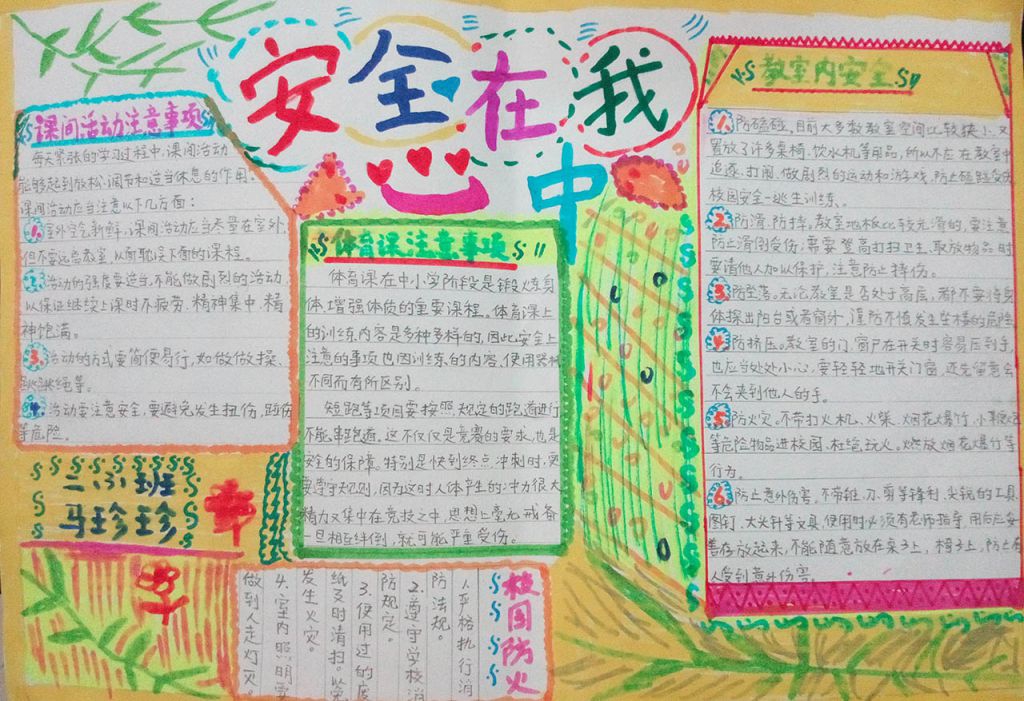 安全在我
心中
课间活动注意事项
每天紧张的学习过程中,课间活动
能够起到放松、调节和适当休息的作用。
课间活动应当注意以下几方面:
1.室外空气新鲜,课间活动应当尽量在室外,
但不要远离教室,以耽误下面的课程。
2.活动的强度要适当,不能做剧烈的活动
以保证继续上课时不疲劳、精神集中、精
神饱满。
3.活动的方式要简便易行,如做做操、
跳跳绳等。
4.活动要注意安全,要避免发生扭伤,
等危险。
三、六班
马珍珍
体育课注意事项
体育课在中小学阶段是锻炼身
体、增强体质的重要课程。体育课上
的训练内容是多种多样的,因此安全上
注意的事项也因训练的内容、使用器械
不同而有所区别。
短跑等项目要按照规定的跑道进行
不能串跑道。这不仅仅是竞赛的要求,也是
安全的保障。特别是快到终点冲刺时,更
要遵守规则,因为这时人体产生的冲力很大
精力又集中在竞技之中,思想上毫无戒备
一旦相互绊倒,就可能严重受伤。
教室内安全
1.防磕碰。目前大多数教室空间比较狭小,又
置放了许多桌椅、饮水机等用品,所以不应在教室中
追逐、打闹,做剧烈的运动和游戏,防止磕碰受伤
校园安全-逃生训练。
2.防滑、防摔。教室地板比较光滑的,要注意
防止滑倒受伤;需要登高打扫卫生、取放物品时
要请他人加以保护,注意防止摔伤。
3.防坠落。无论教室是否处于高层,都不要将身
体探出阳台或者窗外,谨防不慎发生坠楼的危险
4.防挤压。教室的门、窗户在开关时容易压到手,
也应当处处小心,要轻轻地开关门窗,还先留意会
不会夹到他人的手。
5.防火灾。不带打火机、火柴、烟花爆竹、小
等危险物品进校园,杜绝玩火。燃放烟花爆竹等
行为。
6.防止意外伤害。不带锥、刀、剪等锋利、尖锐的工具,
图钉、大头针等文具,使用时必须有老师指导,用后应妥
善存放起来,不能随意放在桌子上,椅子上,防止有
人受到意外伤害。
校园防火
1.严格执行消
防法规。
2.遵守学校消
防规定。
3.使用过的废
纸及时清扫。
发生火灾。
4.室内照明要
做到人走灯灭。